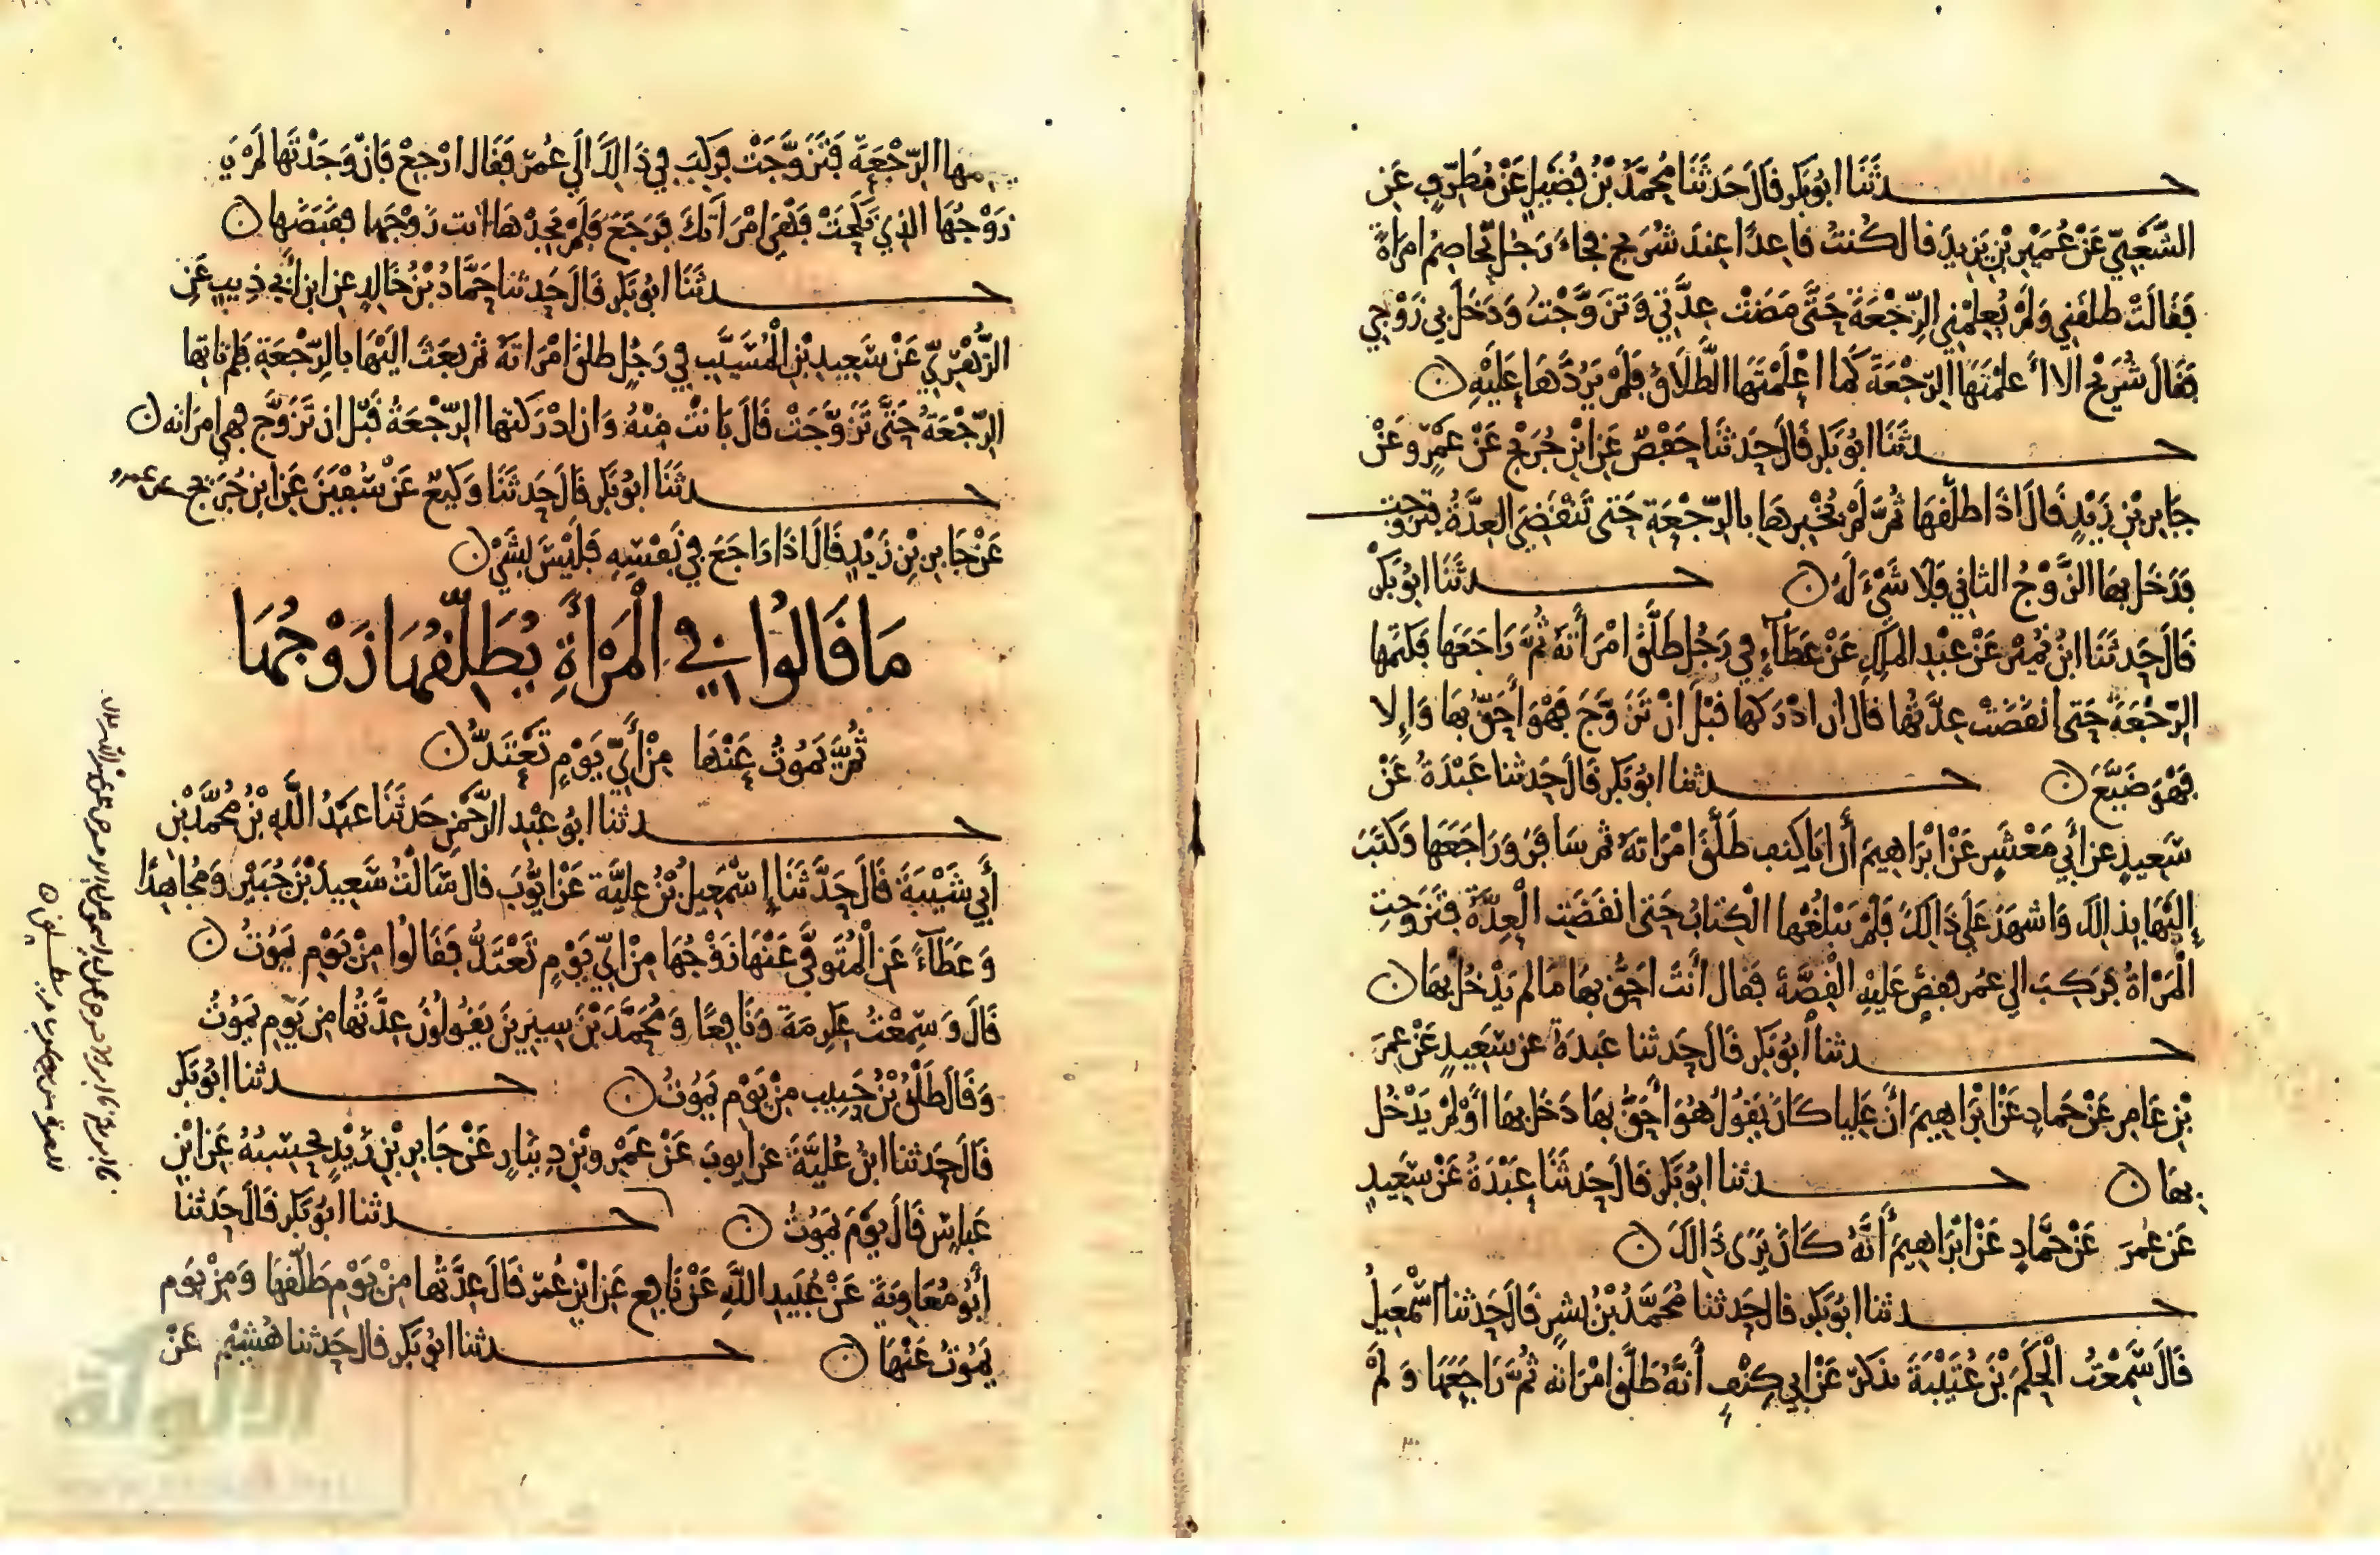 حدثنا ابو بكر قال حدثنا محمد بن فضيل عن مطرف عن
الشعبي عن عمير بن يزيد قال كنت قاعدا عند شريح فجاء رجل يخاصم امراة
فقالت طلقني ولم يعلمني الرجعة حتى مضت عدتي وتزوجت ودخل بي زوجي
فقال شريح الا أعلمتها الرجعة كما اعلمتها الطلاق فلم يردها عليه ن
حدثنا ابو بكر قال حدثنا حفص عن ابن جريج عن عمرو عن
جابر بن زيد قال اذا طلقها ثم لم يخبرها بالرجعة حتى تنقضي العدة فتزوجت
فدخل بها الزوج الثاني فلا شيء له ن حدثنا ابو بكر
قال حدثنا ابن نمير عن عبد الملك عن عطاء في رجل طلق امرأته ثم راجعها فكتمها
الرجعة حتى انقضت عدتها قال ان ادركها قبل ان تزوج فهو أحق بها وإلا
فهو ضيع ن حدثنا ابو بكر قال حدثنا عبدة عن
سعيد عن أبي معشر عن ابراهيم أن ابا كنف طلق امراته ثم سافر وراجعها وكتب
إليها بذالك واشهد على ذالك فلم يبلغها الكتاب حتى انقضت العدة فتزوجت
المراة فركب الي عمر فقص عليه القصة فقال أنت احق بها ما لم يدخل بها ن
حدثنا أبو بكر قال حدثنا عبدة عن سعيد عن عمر
بن عامر عن حماد عن ابراهيم أن عليا كان يقول هو أحق بها دخل بها أو لم يدخل
بها ن حدثنا ابو بكر قال حدثنا عبدة عن سعيد
عن عمر عن حماد عن ابراهيم أنه كان يرى ذالك ن
حدثنا ابو بكر قال حدثنا محمد بن بشر قال حدثنا اسمعيل
قال سمعت الحكم بن عتيبة يذكر عن ابي كنف أنه طلق امراته ثم راجعها ولم
الرجعة فتزوجت فركب في ذالك الي عمر فقال ارجع فان وجدتها لم
زوجها الذي نكحت فهي امراتك فرجع فلم يجدها اتت زوجها فقبضها ن
حدثنا ابو بكر قال حدثنا حماد بن خالد عن ابن أبي ذيب عن
الزهري عن سعيد بن المسيب في رجل طلق امراته ثم بعث اليها بالرجعة فلم تاتها
الرجعة حتى تزوجت قال بانت منه وان ادركتها الرجعة قبل ان تزوج فهي امراته ن
حدثنا ابو بكر قال حدثنا وكيع عن سفين عن ابن جريج عن عمرو
عن جابر بن زيد قال اذا راجع في نفسه فليس بشي ن
ما قالوا في المرأة يطلقها زوجها
ثم يموت عنها من أي يوم تعتد ن
حدثنا ابو عبد الرحمن حدثنا عبد الله بن محمد بن
أبي شيبة قال حدثنا إسمعيل بن علية عن ايوب قال سالت سعيد بن جبير ومجاهدا
وعطاء عن المتوفى عنها زوجها من اي يوم تعتد فقالوا من يوم يموت ن
قال وسمعت عكرمة ونافعا ومحمد بن سيرين يقولون عدتها من يوم يموت
وقال طلق بن حبيب من يوم يموت ن حدثنا ابو بكر
قال حدثنا ابن علية عن ايوب عن عمرو بن دينار عن جابر بن زيد يحسبه عن ابن
عباس قال يوم يموت ن حدثنا ابو بكر قال حدثنا
أبو معاوية عن عبيد الله عن نافع عن ابن عمر قال عدتها من يوم طلقها ومن يوم
يموت عنها ن حدثنا ابو بكر قال حدثنا هشيم عن
الألوكة